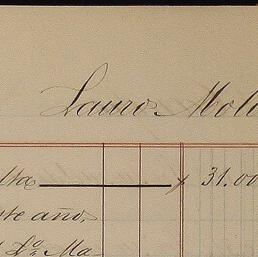 Lauro Moli
lta $ 31.00
ste año,
l Dº Ma-